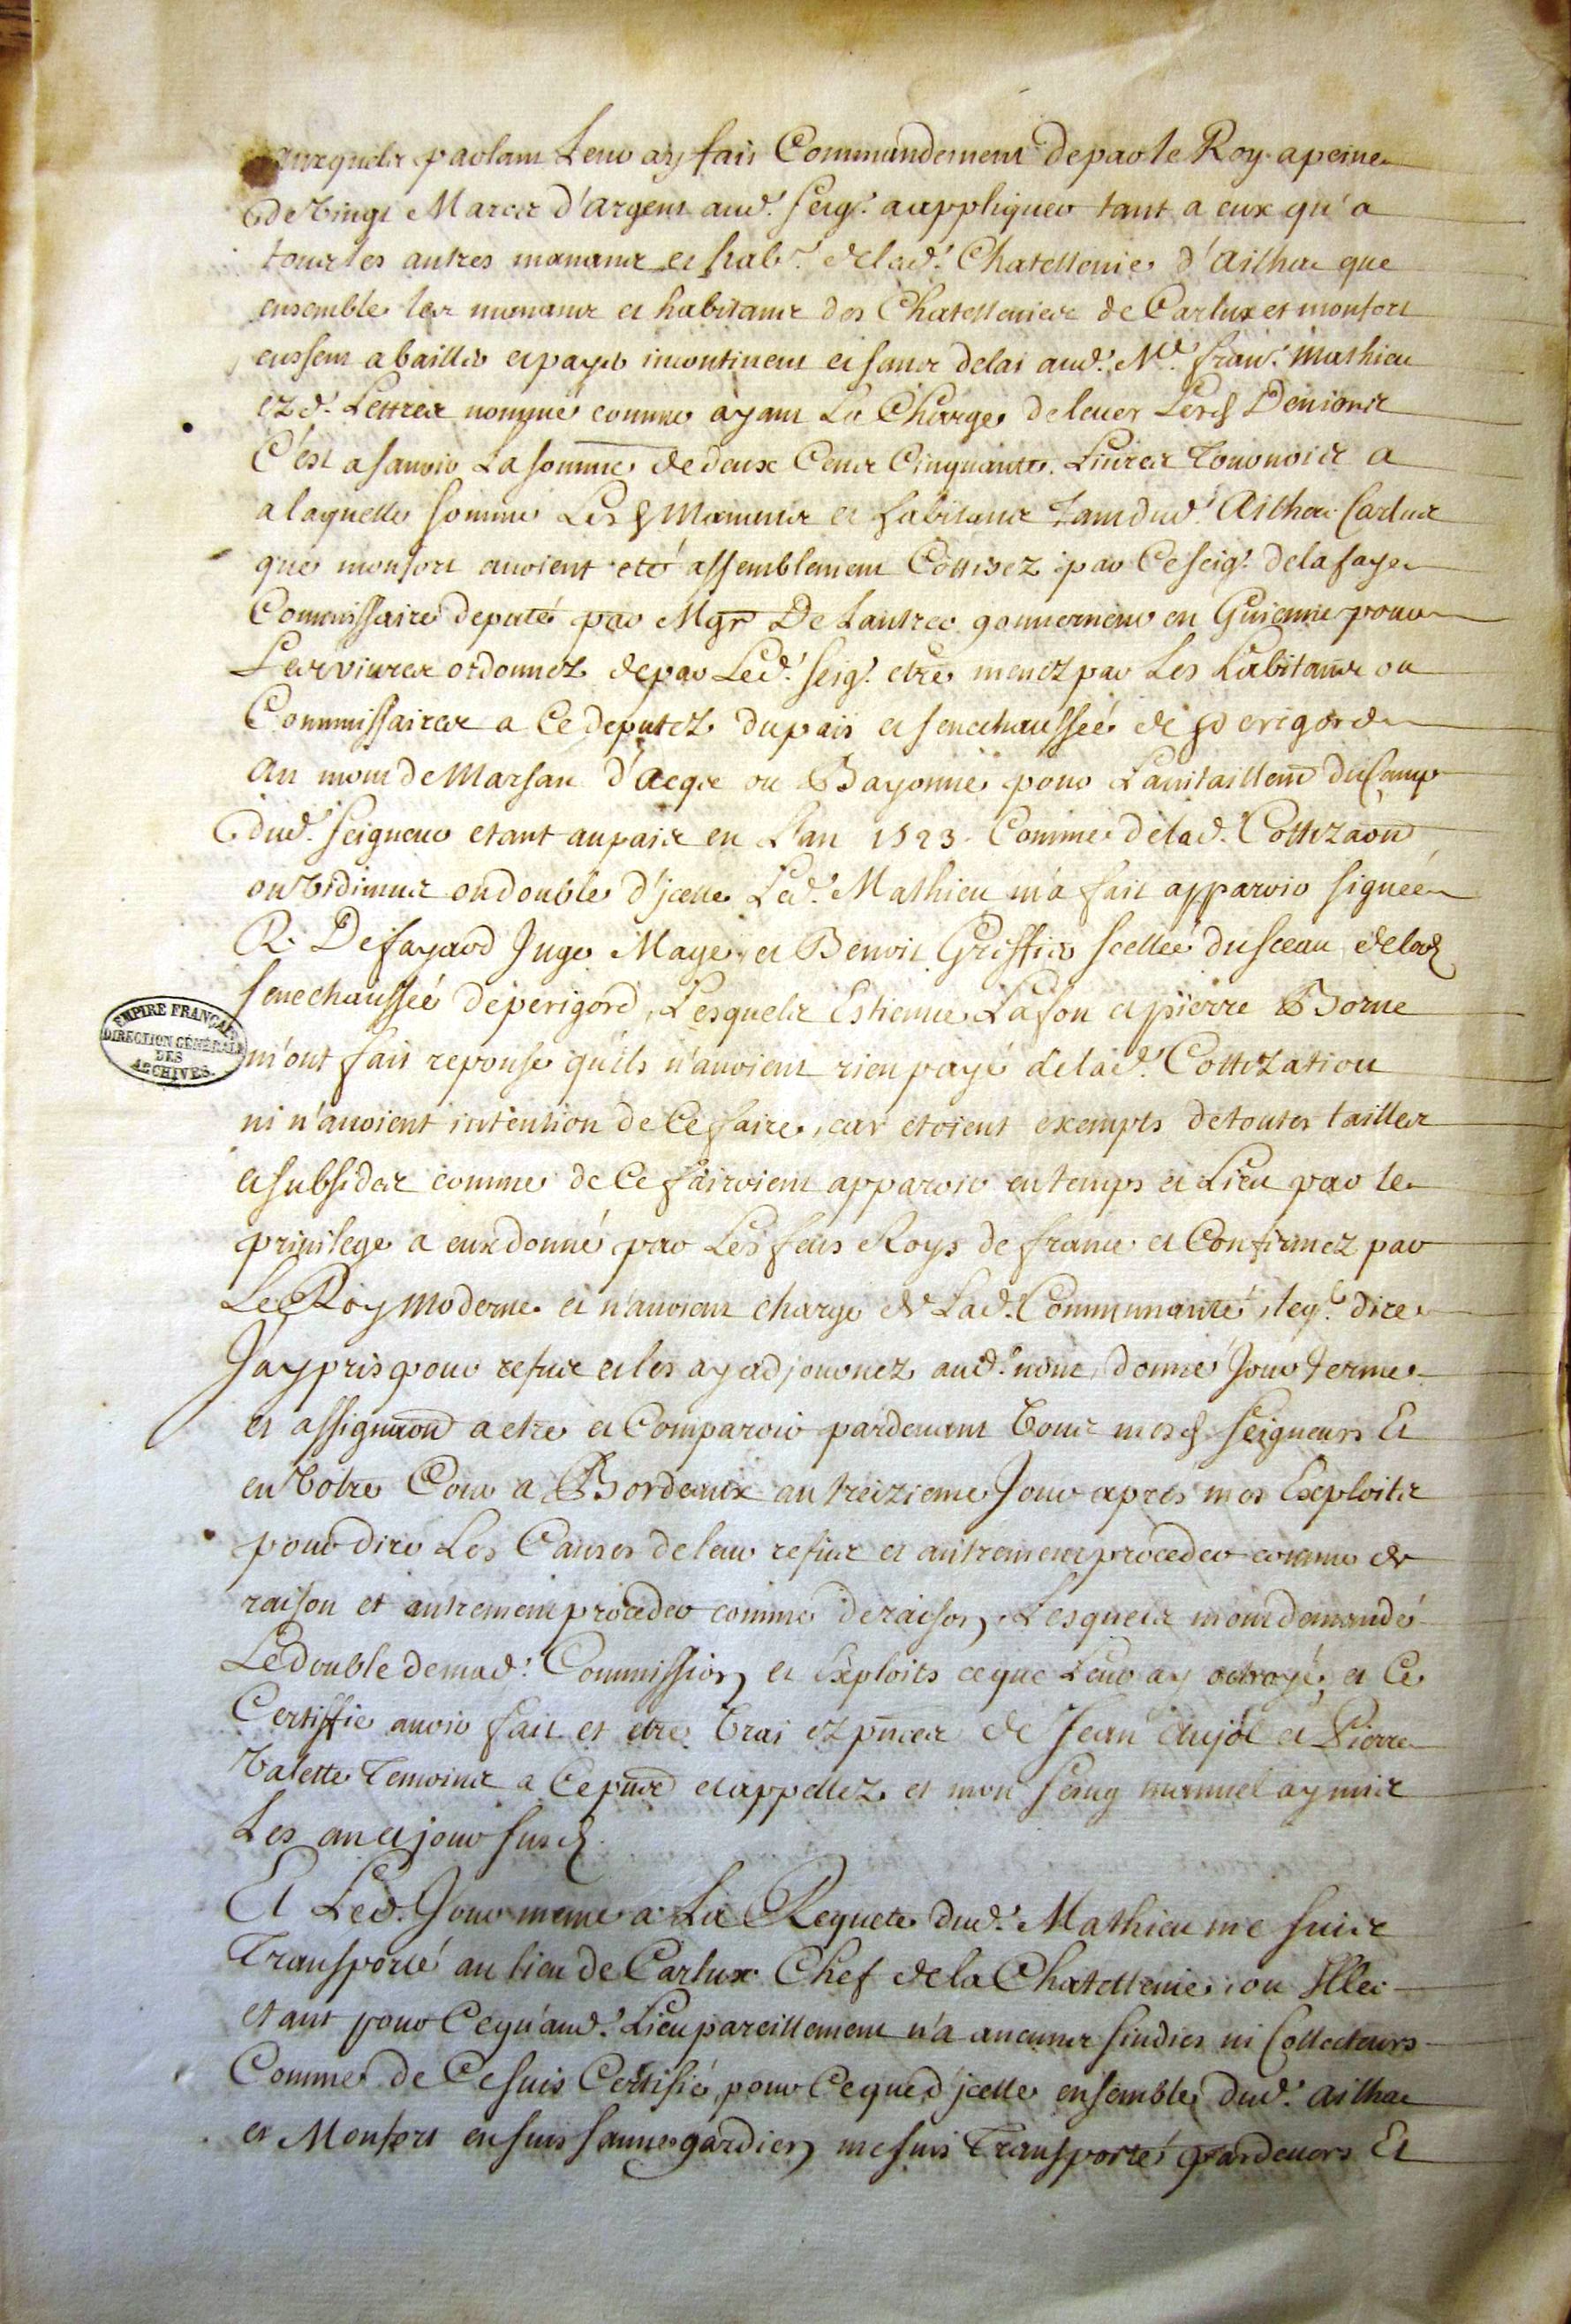 auxquels parlant Leur ay fait Commandement depar le Roy apeine
de vingt Marcs d'argent aud. seigr. aappliquer tant a eux qu'a
tous les autres manans et habt. delad. Chatellenie d'Ailhac que
ensemble les manans et habitans des Chatellenies de Carlux et monfort
eussent abailler et payer incontinent et sans delai aud. Me. frans. Mathieu
ezd. Lettres nommé comme ayant La Charge delever Lesd Deniers
C'est asavoir La somme de deux Cens Cinquante Livres Tournois a
a laquelle somme Lesd Manans et habitans tant dud. Ailhac Carlux
que monfort avoient eté assemblement Cottisez par Ce seigr. delafaye
Commissaire deputé par Mgr De Lautrec gouverneur en Guienne pour
Les vivres ordonnez depar Led. seigr. etre menez par Les habitans ou
Commissaires a Ce deputez du pais et senechaussée de perigord
au mont de Marsan d'acqs ou Bayonne pour L'avitaillemt du Camp
dud. seigneur etant aupais en L'an 1523. Comme delad. Cottizaon
ou vidimus ou double d'jcelle Led. Mathieu m'a fait apparoir signée
R. Defayard Juge Mage et Benoit Greffier scellée du sceau delad
senechaussée deperigord, Lesquels Estienne Lafon et pierre Borne
m'ont fait reponse qu'ils n'avoient rien payé delad. Cottization
ni n'avoient intention de Ce faire, car etoient exempts de toutes tailles
et subsides comme de Ce fairoient apparoir en temps et Lieu par le
privilege a eux donné par Les feus Roys de france et Confirmez par
Le Roy moderne et n'avoient charge de Lad. Communauté, leql. dire
J'ay pris pour refus et les ay adjournez aud. nom, donné Jour terme
et assignaon a etre et Comparoir pardevant vous mesd seigneurs Et
en votre Cour a Bordeaux au treizieme Jour apres mes Exploits
pour dire Les Causes de leur refus et autrement proceder comme de
raison et autrement proceder comme de raison, Lesquels m'ont demandé
Le double demad. Commission et Exploits ceque Leur ay octroyé, et Ce
Certiffie avoir fait et etre vrai ez pnces de Jean aujol et Pierre
Valette Temoins a Ce pnts et appellez et mon seing manuel ay mis
Les an et jour susd.
Et Led. Jour meme a La Requete dud. Mathieu me suis
Transporté au lieu de Carlux Chef de la Chatellenie, ou Illec
etant pour Cequ'aud. Lieu pareillement n'a aucuns sindics ni Collecteurs
Comme de Ce suis Certifié, pour Ceque d'jcelle ensemble dud. ailhac
et Monfort en suis sauvegardien, me suis Transporté pardevers Et
EMPIRE FRANÇAIS
DIRECTION GÉNÉRALE
DES
ARCHIVES.